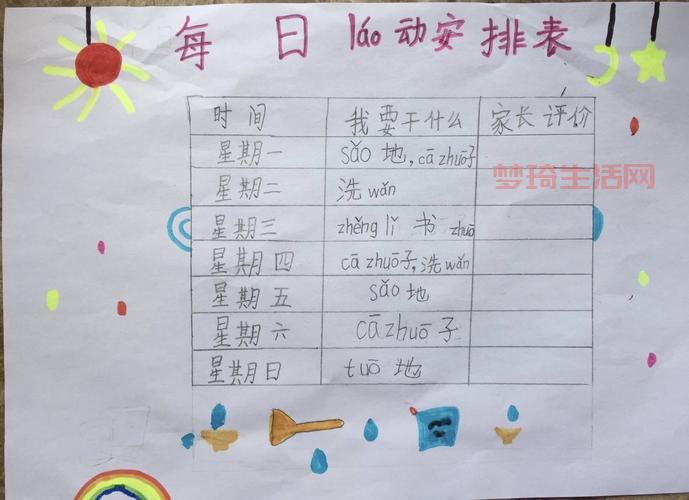 每日láo动安排表
时间 我要干什么 家长评价
星期一 sǎo地,cā zhuō子
梦琦生活网
星期二 洗wǎn
星期三 zhěng lǐ 书 zhuō
星期四 cā zhuō子,洗wǎn
星期五 sǎo地
星期六 cā zhuō子
星期日 tuō地